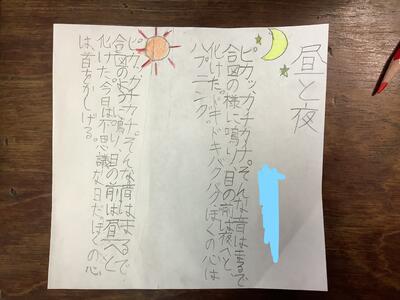 昼と夜
ピカッ、カナカナ。そんな音はまるで
合図の様に鳴り、目の前は夜へと、
化けた。ドキドキバクバクぼくの心は
ハプニング。
ピカッ、カナカナ。そんな音はまるで
合図のように鳴り、目の前は昼へと
化けた。今日は不思議な日だ。ぼくの心
は、首をかしげる。